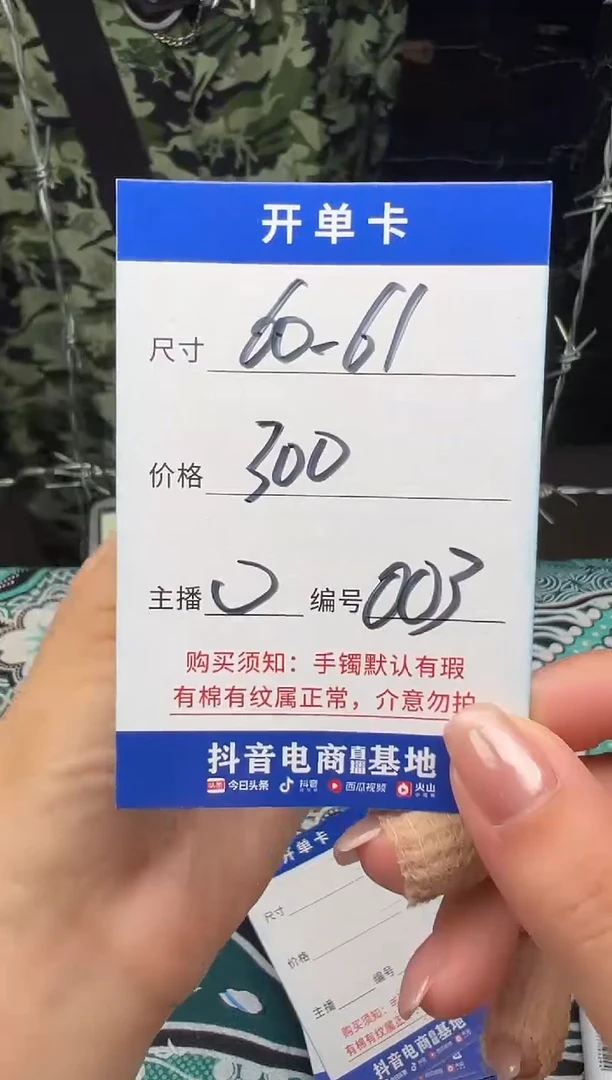 开单卡
尺寸 60-61
价格 300
主播 编号 003
购买须知：手镯默认有瑕
有棉有纹属正常，介意勿拍
抖音电商直播基地
头条 今日头条 抖音 西瓜视频 火山
开单卡
尺寸
价格
主播 编号
购买须知：手
有棉有纹属正
抖音电商直播基地